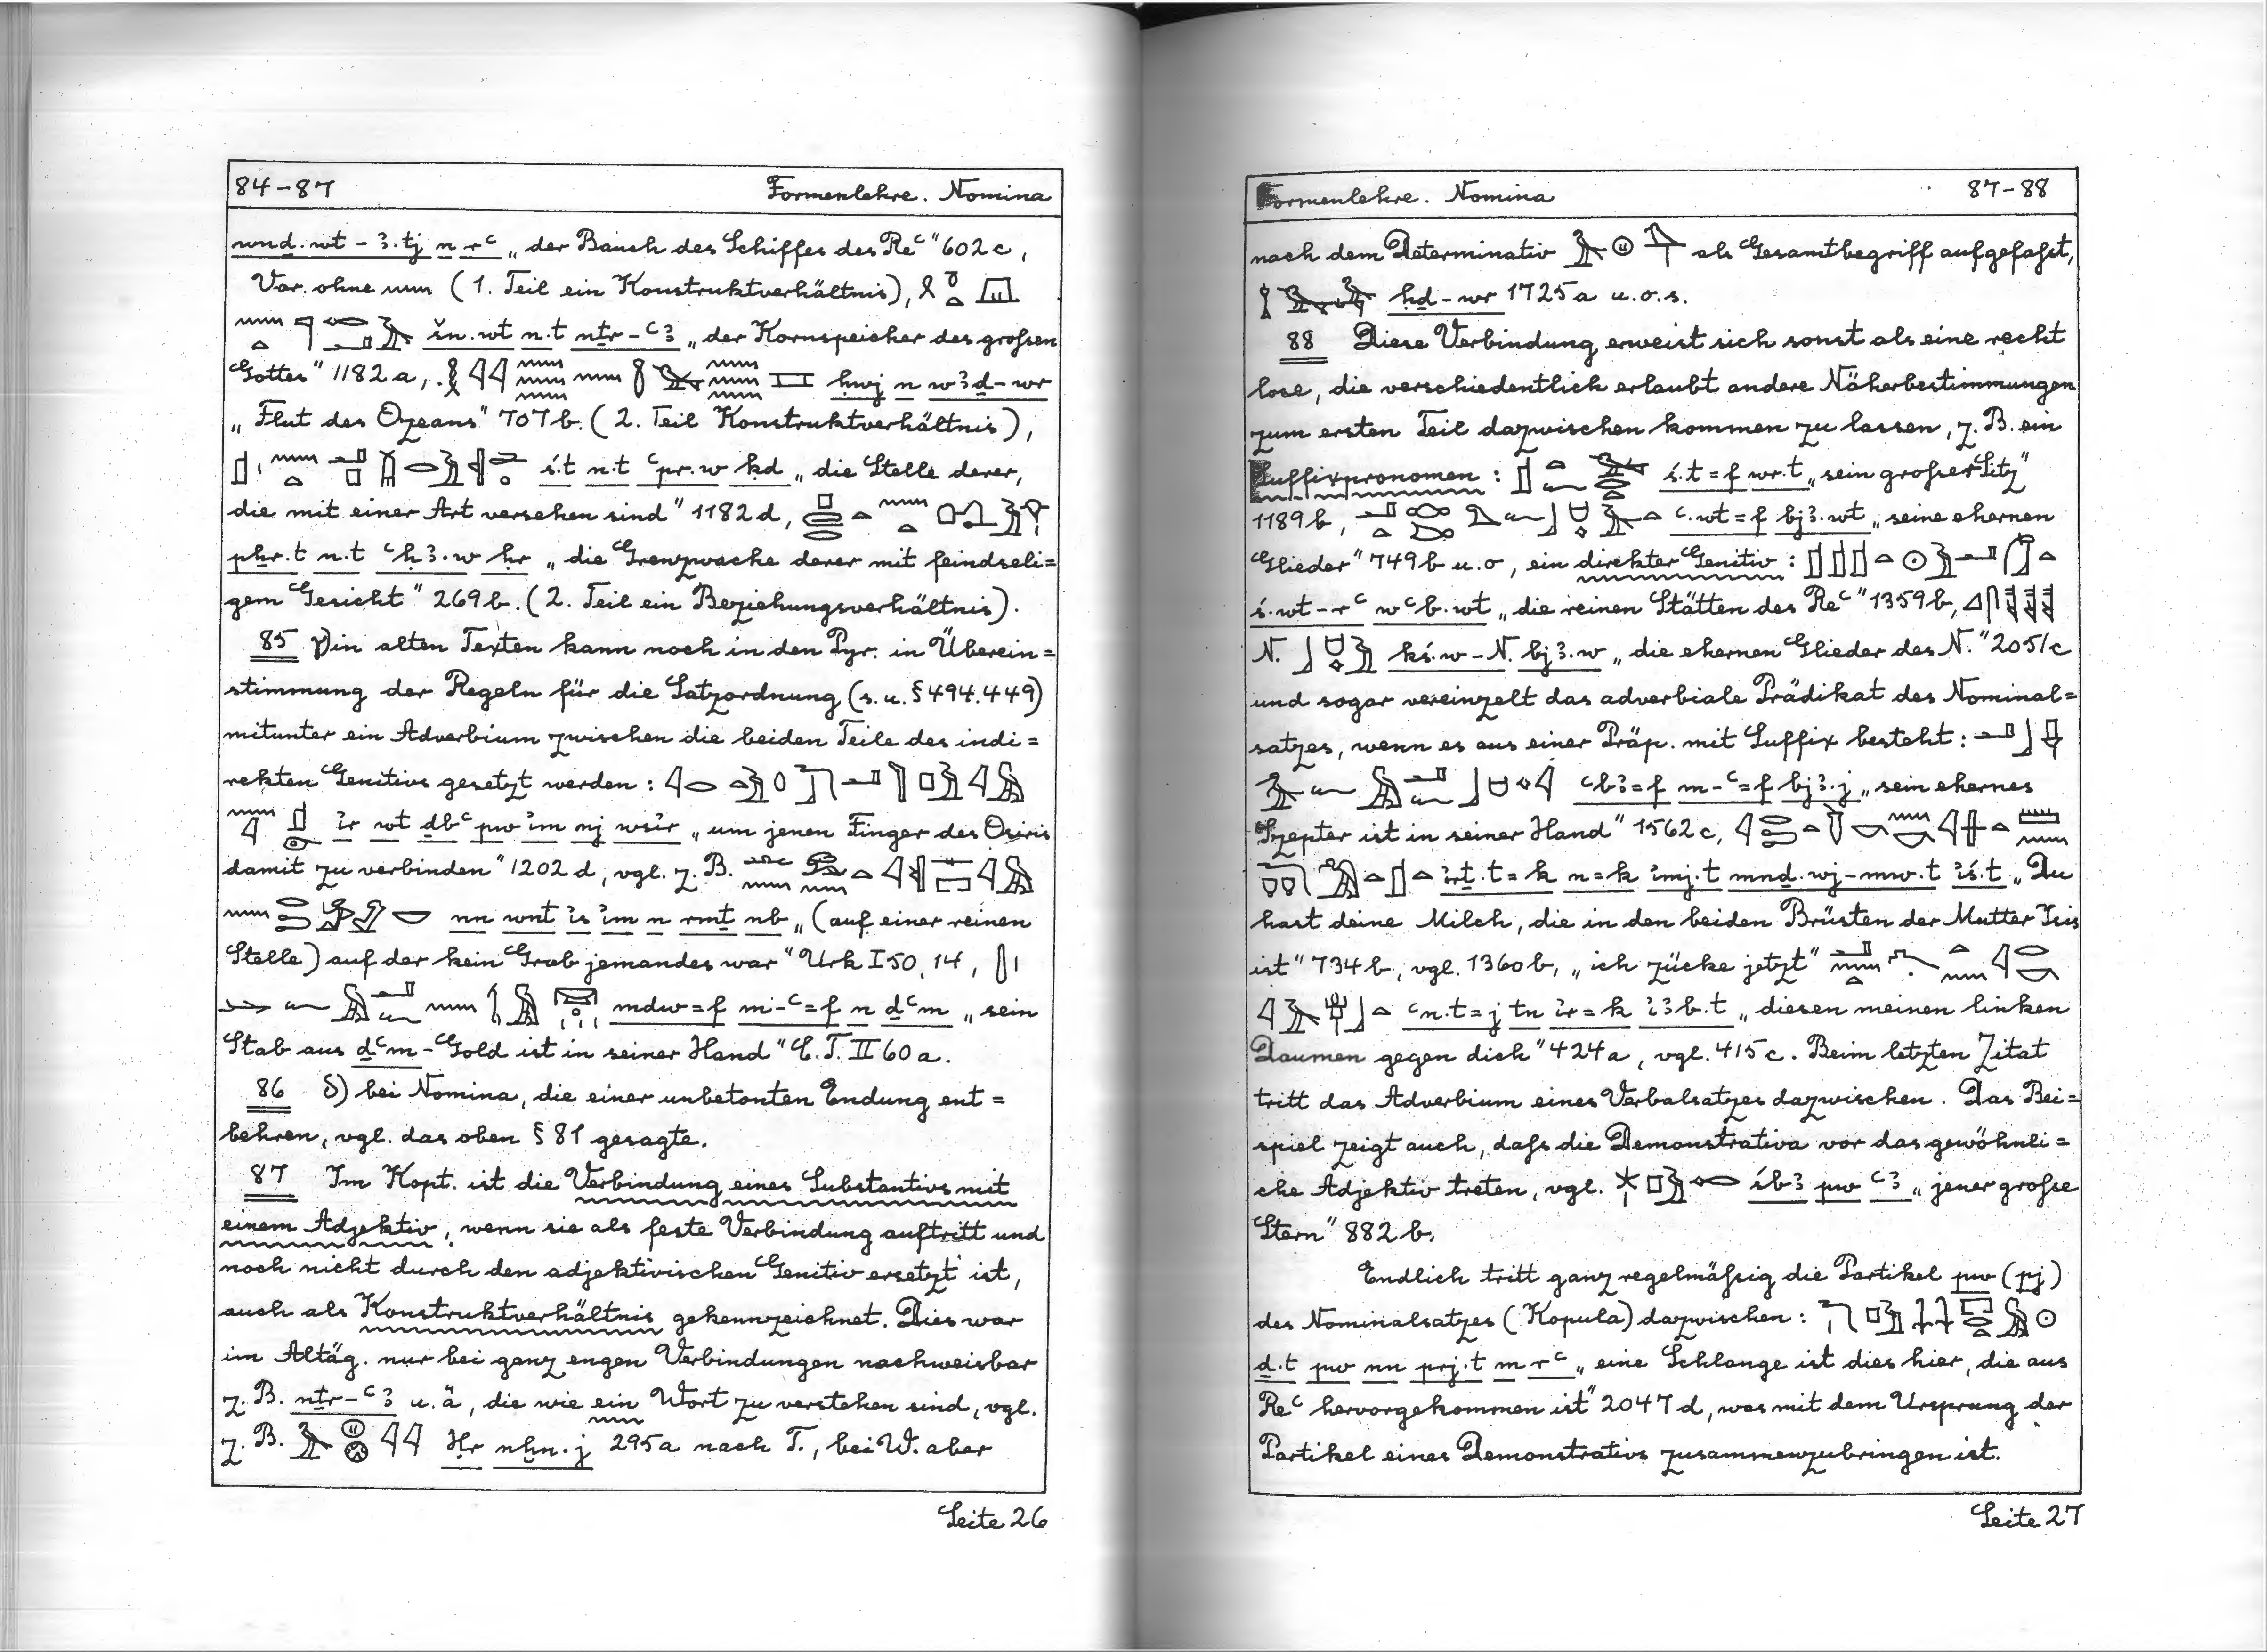 84-87 Formenlehre. Nomina
wnḏ.wt - ꜣ.tj n rꜥ „der Bauch des Schiffes des Reꜥ“ 602c,
Var. ohne nun (1. Teil ein Konstruktverhältnis),
šn.wt n.t nṯr-ꜥꜣ „der Kornspeicher des großen
Gottes“ 1182a, ḥwj n wꜣḏ-wr
„Flut des Ozeans“ 707b. (2. Teil Konstruktverhältnis),
ś.t n.t ꜥpr.w ḳd „die Stelle derer,
die mit einer Art versehen sind“ 1182d,
pẖr.t n.t ꜥḫꜣ.w ḥr „die Grenzwache derer mit feindseli=
gem Gesicht“ 269b. (2. Teil ein Beziehungsverhältnis).
85 γ) in alten Texten kann noch in den Pyr. in Überein=
stimmung der Regeln für die Satzordnung (s. u. § 494.449)
mitunter ein Adverbium zwischen die beiden Teile des indi=
rekten Genitivs gesetzt werden:
ir wt ḏbꜥ pw im nj wsir „um jenen Finger des Osiris
damit zu verbinden“ 1202d, vgl. z. B.
nn wnt is im n rmṯ nb „(auf einer reinen
Stelle) auf der kein Grab jemandes war“ Urk I 50, 14,
mdw=f m-ꜥ=f n ḏꜥm „sein
Stab aus ḏꜥm-Gold ist in seiner Hand“ C.T. II 60a.
86 δ) bei Nomina, die einer unbetonten Endung ent=
behren, vgl. das oben § 81 gesagte.
87 Im Kopt. ist die Verbindung eines Substantivs mit
einem Adjektiv, wenn sie als feste Verbindung auftritt und
noch nicht durch den adjektivischen Genitiv ersetzt ist,
auch als Konstruktverhältnis gekennzeichnet. Dies war
im Altäg. nur bei ganz engen Verbindungen nachweisbar
z. B. nṯr-ꜥꜣ u. ä, die wie ein Wort zu verstehen sind, vgl.
z. B. Ḥr nḫn.j 295a nach T., bei W. aber
Seite 26
Formenlehre. Nomina 87-88
nach dem Determinativ als Gesamtbegriff aufgefaßt,
ḥḏ-wr 1725a u.o.s.
88 Diese Verbindung erweist sich sonst als eine recht
lose, die verschiedentlich erlaubt andere Näherbestimmungen
zum ersten Teil dazwischen kommen zu lassen, z. B. ein
Suffixpronomen: ś.t=f wr.t „sein großer Sitz“
1189b, ꜥ.wt=f bjꜣ.wt „seine ehernen
Glieder“ 749b u. o, ein direkter Genitiv:
ś.wt-rꜥ wꜥb.wt „die reinen Stätten des Reꜥ“ 1359b,
N. ḳś.w-N. bjꜣ.w „die ehernen Glieder des N.“ 2051c
und sogar vereinzelt das adverbiale Prädikat des Nominal=
satzes, wenn es aus einer Präp. mit Suffix besteht:
ꜥbꜣ=f m-ꜥ=f bjꜣ.j „sein ehernes
Szepter ist in seiner Hand“ 1562c,
irṯ.t=k n=k imj.t mnḏ.wj-mw.t iś.t „Du
hast deine Milch, die in den beiden Brüsten der Mutter Isis
ist“ 734b, vgl. 1360b, „ich zücke jetzt“
ꜥn.t=j tn ir=k iꜣb.t „diesen meinen linken
Daumen gegen dich“ 424a, vgl. 415c. Beim letzten Zitat
tritt das Adverbium eines Verbalsatzes dazwischen. Das Bei=
spiel zeigt auch, daß die Demonstrativa vor das gewöhnli=
che Adjektiv treten, vgl. śbꜣ pw ꜥꜣ „jener große
Stern“ 882b.
Endlich tritt ganz regelmäßig die Partikel pw (pj)
des Nominalsatzes (Kopula) dazwischen:
ḏ.t pw nn prj.t m rꜥ „eine Schlange ist dies hier, die aus
Reꜥ hervorgekommen ist“ 2047d, was mit dem Ursprung der
Partikel eines Demonstrativs zusammenzubringen ist.
Seite 27